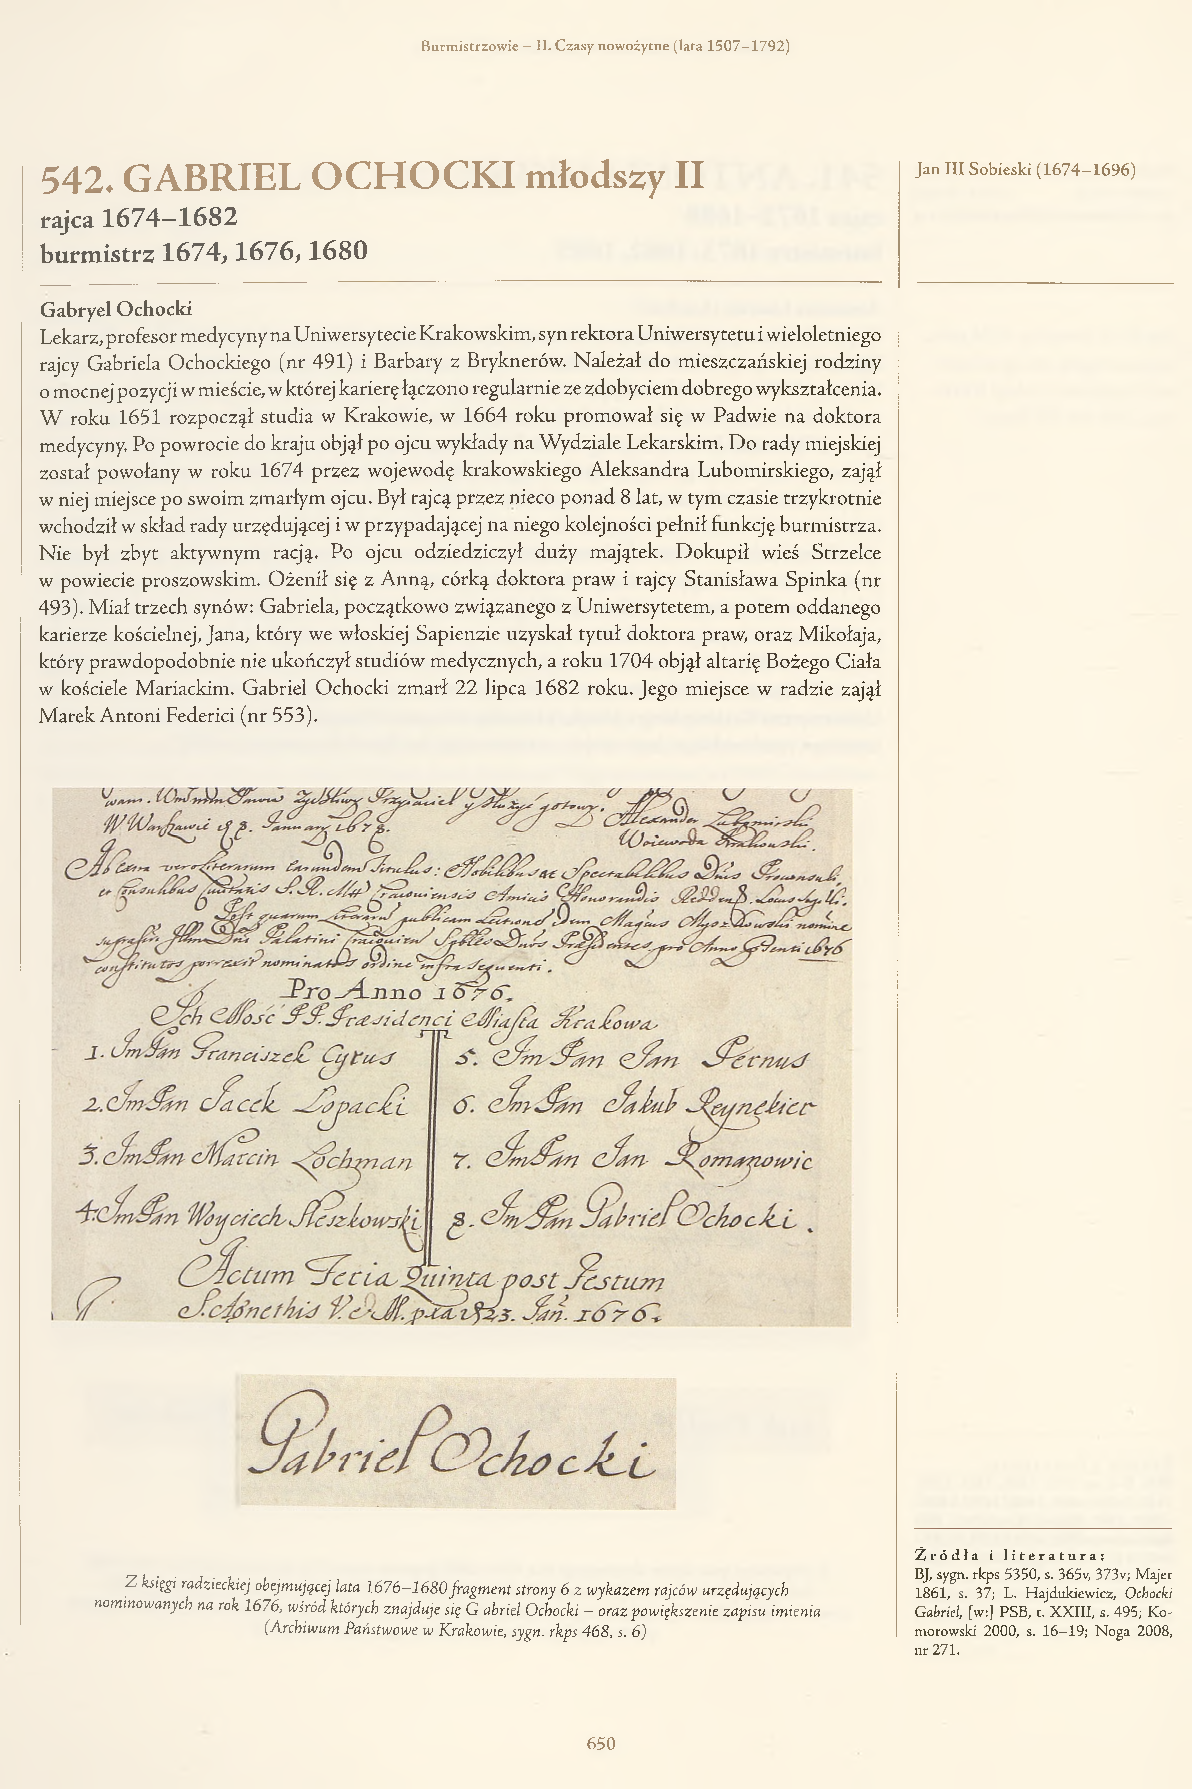 Burmistrzowie – II. Czasy nowożytne (lata 1507–1792)
542. GABRIEL OCHOCKI młodszy II
rajca 1674–1682
burmistrz 1674, 1676, 1680
Jan III Sobieski (1674–1696)
Gabryel Ochocki
Lekarz, profesor medycyny na Uniwersytecie Krakowskim, syn rektora Uniwersytetu i wieloletniego
rajcy Gabriela Ochockiego (nr 491) i Barbary z Bryknerów. Należał do mieszczańskiej rodziny
o mocnej pozycji w mieście, w której karierę łączono regularnie ze zdobyciem dobrego wykształcenia.
W roku 1651 rozpoczął studia w Krakowie, w 1664 roku promował się w Padwie na doktora
medycyny. Po powrocie do kraju objął po ojcu wykłady na Wydziale Lekarskim. Do rady miejskiej
został powołany w roku 1674 przez wojewodę krakowskiego Aleksandra Lubomirskiego, zajął
w niej miejsce po swoim zmarłym ojcu. Był rajcą przez nieco ponad 8 lat, w tym czasie trzykrotnie
wchodził w skład rady urzędującej i w przypadającej na niego kolejności pełnił funkcję burmistrza.
Nie był zbyt aktywnym racją. Po ojcu odziedziczył duży majątek. Dokupił wieś Strzelce
w powiecie proszowskim. Ożenił się z Anną, córką doktora praw i rajcy Stanisława Spinka (nr
493). Miał trzech synów: Gabriela, początkowo związanego z Uniwersytetem, a potem oddanego
karierze kościelnej, Jana, który we włoskiej Sapienzie uzyskał tytuł doktora praw, oraz Mikołaja,
który prawdopodobnie nie ukończył studiów medycznych, a roku 1704 objął altarię Bożego Ciała
w kościele Mariackim. Gabriel Ochocki zmarł 22 lipca 1682 roku. Jego miejsce w radzie zajął
Marek Antoni Federici (nr 553).
Alexander Lubomirski
Woiewoda Krakowski.
Pro Anno 1676.
Ich Mość PP. Præsidenci Miasta Krakowa
1. Im Pan Franciszek Cyrus
2. Im Pan Jacek Łopacki
3. Im Pan Marcin Lochman
4. Im Pan Woyciech Sleszkowski
5. Im Pan Jan Pernus
6. Im Pan Jakub Reynekier
7. Im Pan Jan Romanowic
8. Im Pan Gabriel Ochocki.
Actum Feria Quinta post Festum
Jan. 1676.
Gabriel Ochocki
Z księgi radzieckiej obejmującej lata 1676–1680 fragment strony 6 z wykazem rajców urzędujących
nominowanych na rok 1676, wśród których znajduje się G abriel Ochocki – oraz powiększenie zapisu imienia
(Archiwum Państwowe w Krakowie, sygn. rkps 468, s. 6)
Źródła i literatura:
BJ, sygn. rkps 5350, s. 365v, 373v; Majer
1861, s. 37; L. Hajdukiewicz, Ochocki
Gabriel, [w:] PSB, t. XXIII, s. 495; Ko-
morowski 2000, s. 16–19; Noga 2008,
nr 271.
650